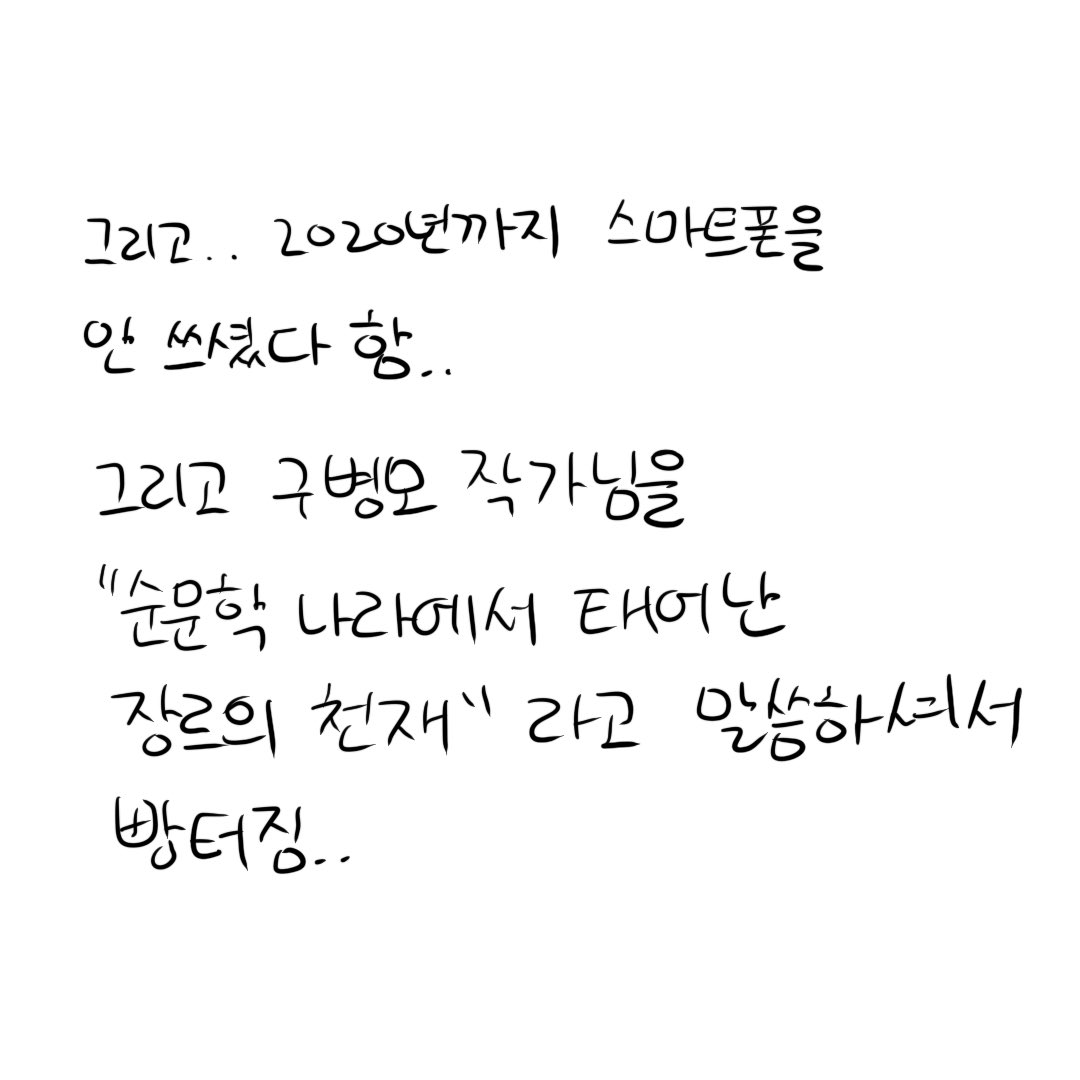 그리고.. 2020년까지 스마트폰을
안 쓰셨다 함..
그리고 구병모 작가님을
"순문학 나라에서 태어난
장르의 천재" 라고 말씀하셔서
빵터짐..